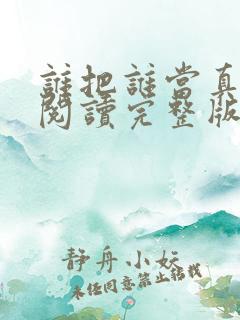 誰把誰當真
閱讀完整版
靜舟小妖
未经同意禁止转载